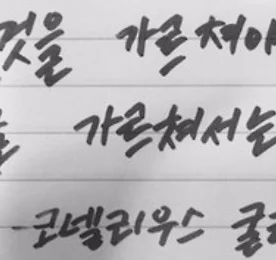 것을 가르쳐야
가르쳐서는
코넬리우스 굴